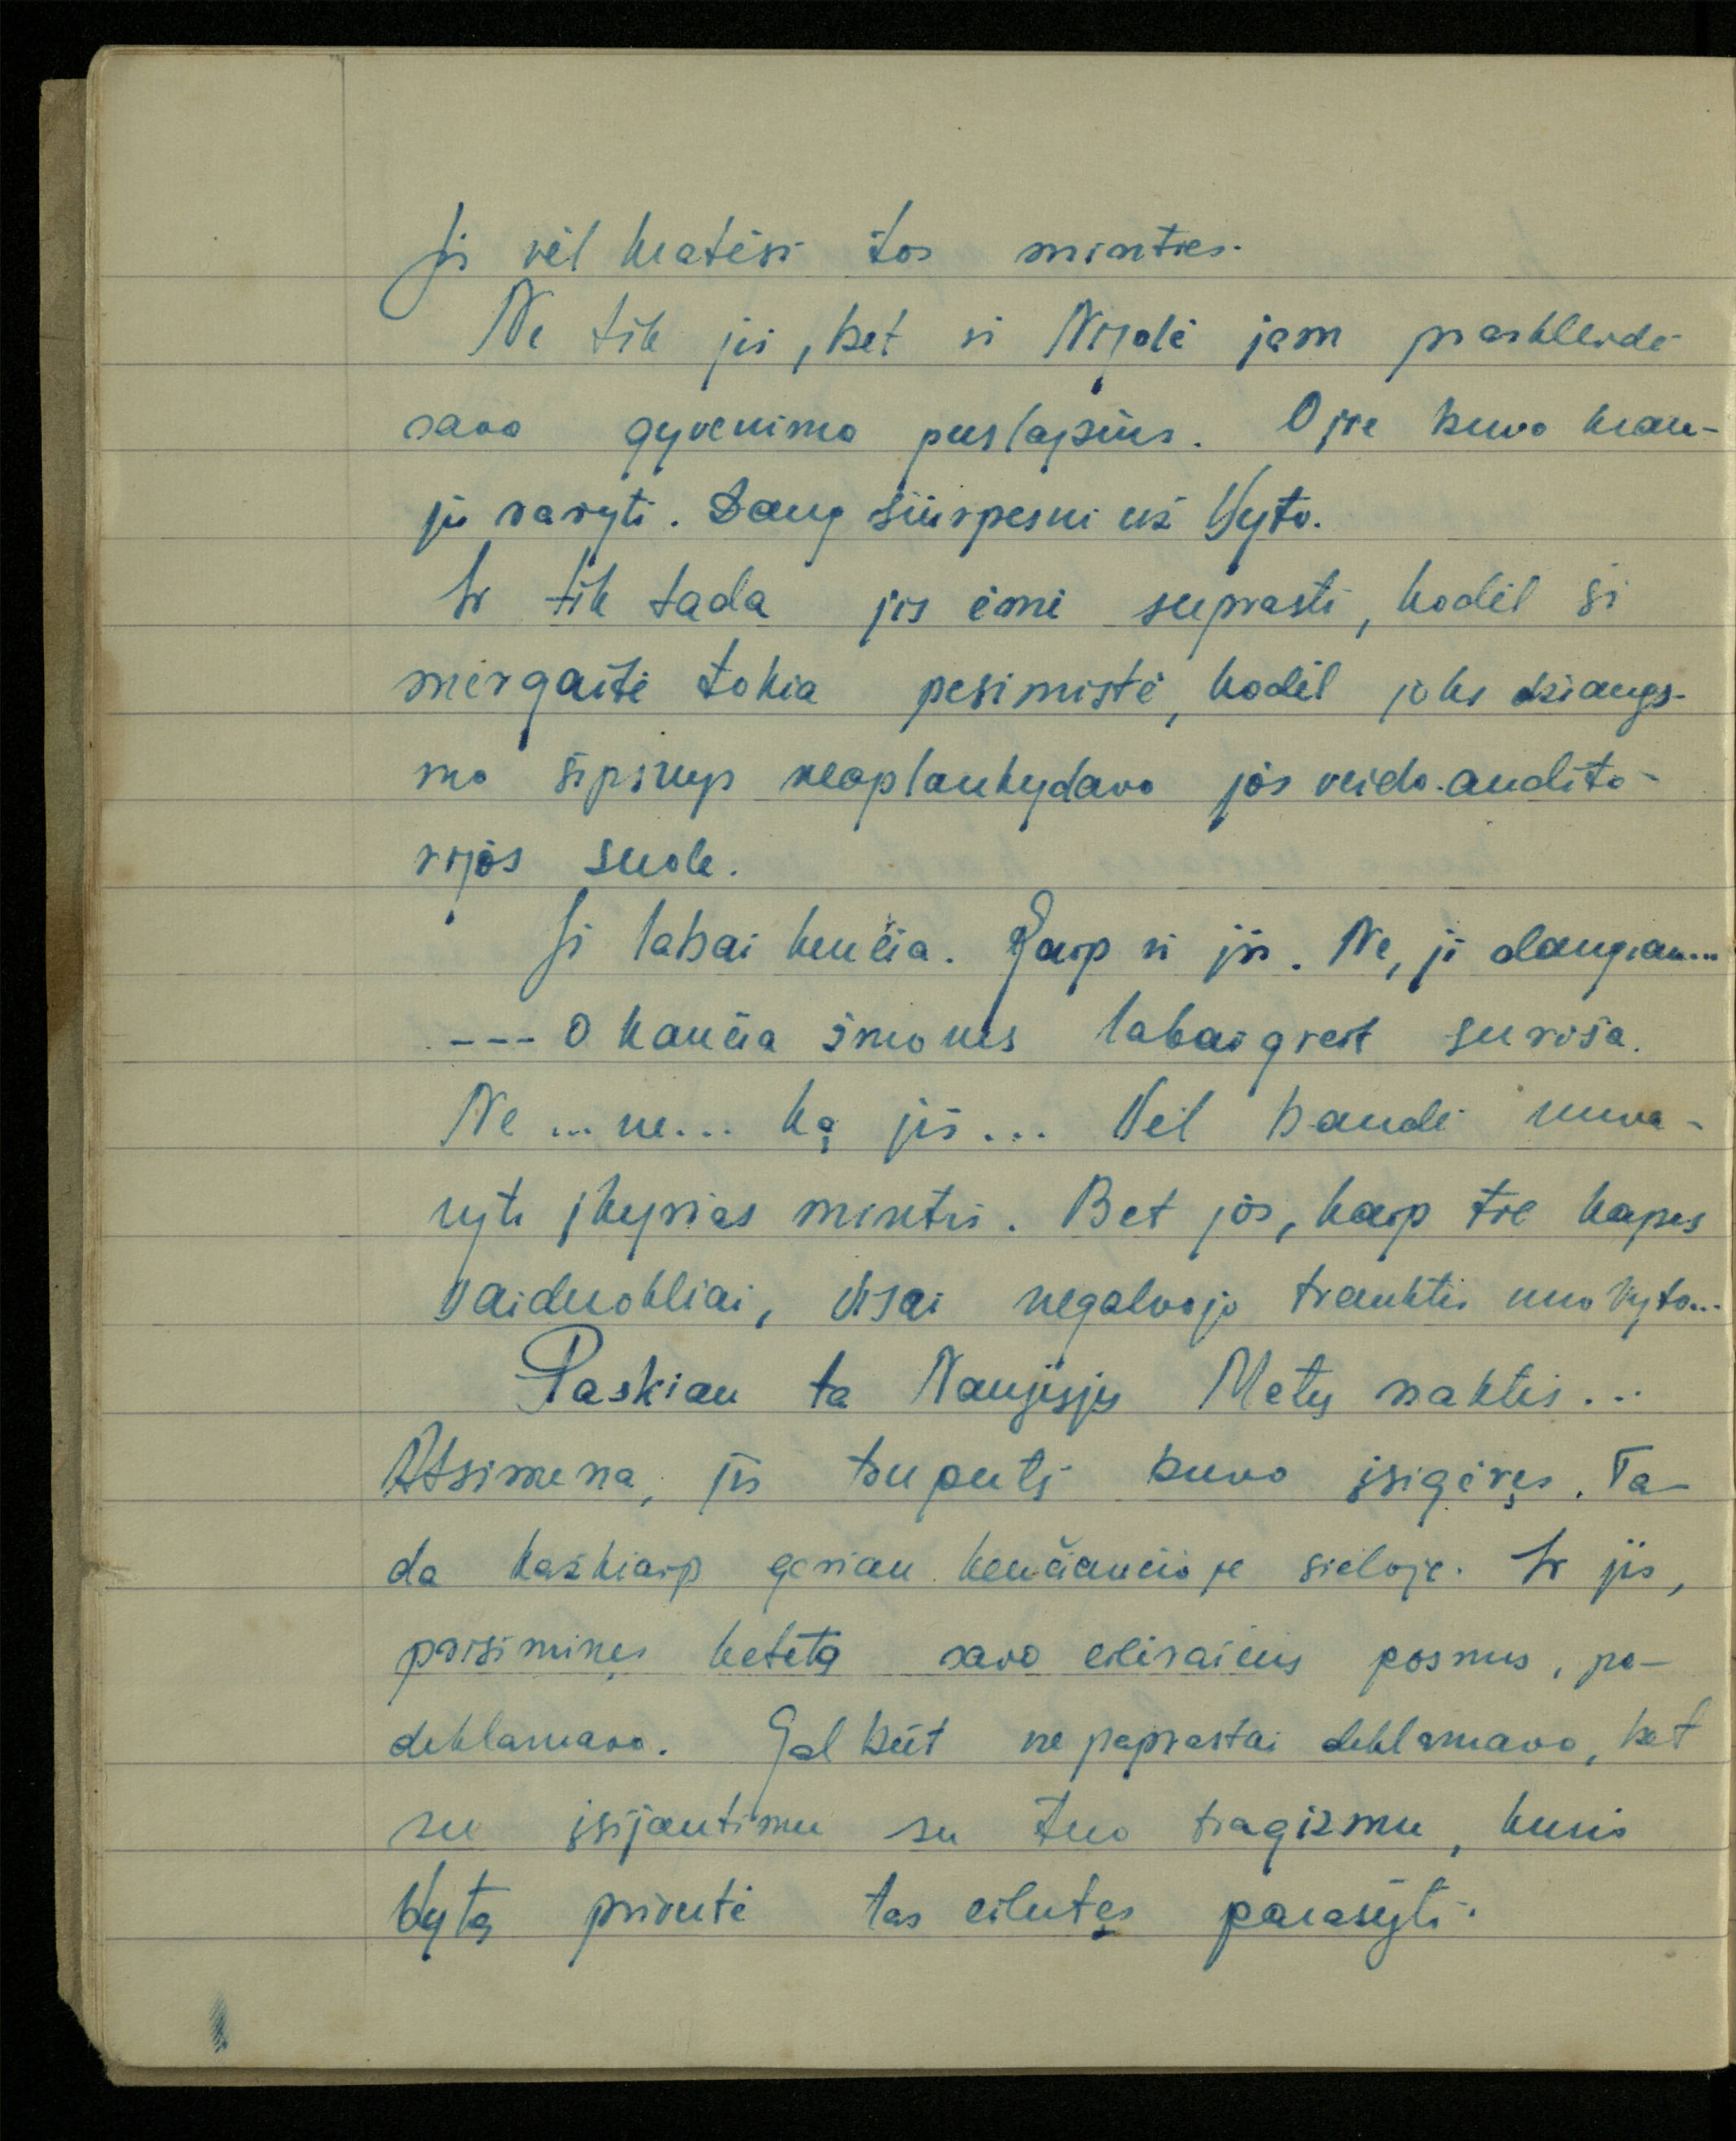 Jis vėl kratėsi tos minties.
Ne tik jis, bet ir Nijolė jam praskleidė
savo gyvenimo puslapius. O jie buvo krau-
ju rašyti. Daug šiurpesni už Vyto.
Ir tik tada jis ėmė suprasti, kodėl ši
mergaitė tokia pesimistė, kodėl joks džiaugs-
mo šypsnys neaplankydavo jos veido audito-
rijos suole.
Ji labai kenčia. Kaip ir jis. Ne, ji daugiau...
--- O kančia žmones labai greit suriša.
Ne... ne... ką jis... Vėl bandė nuva-
ryti įkyrias mintis. Bet jos, kaip tie kapų
vaiduokliai, visai negalvojo trauktis nuo Vyto...
Paskiau ta Naujųjų Metų naktis...
Atsimena, jis truputį buvo įsigėręs. Ta-
da kažkiaip geriau kenčiančioje sieloje. Ir jis,
prisiminęs keletą savo eilėraščių posmus, pa-
deklamavo. Gal būt nepaprastai deklamavo, bet
su įsijautimu su tuo tragizmu, kuris
Vytą privertė tas eilutes parašyti.